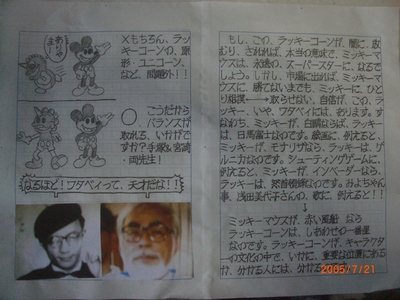 ありゃまー
×もちろん、ラッ
キーコーンの、原
形、ユニコーン、
など、問題外!!
○ こうだから
バランスが
取れる、いかがで
すか?手塚&宮崎
両先生!
なるほど!ワタベイって、天才だな!!
もし、この、ラッキーコーンが、闇に、
むり、されれば、本当の意味で、ミッキーマ
ウスは、永遠の、スーパースターに、なるで
しょう。しかし、市場に出れば、ミッキーマウ
スに、勝てないまでも、ミッキーに、ひと
り相撲→取らせない、自信が、この、ラッ
キー、いや、ワタベイには、あります。す
なわち、ミッキーが、白鵬ならば、ラッキー
は、日馬富士なのです。絵画に、例えると、
ミッキーが、モナリザなら、ラッキーは、ゲ
ルニカなのです。シューティングゲームに、
例えると、ミッキーが、インベーダーなら、
ラッキーは、なのです。みよちゃん
事、浅田美代子さんの、歌に、例えると!
↓
ミッキーマウスが、赤い風船なら
ラッキーコーンは、しあわせの一番星
なのです。ラッキーコーンが、キャラクター
の文化の中で、いかに、重要な位置にある
か、分かる人には、分かる
2005/7/21